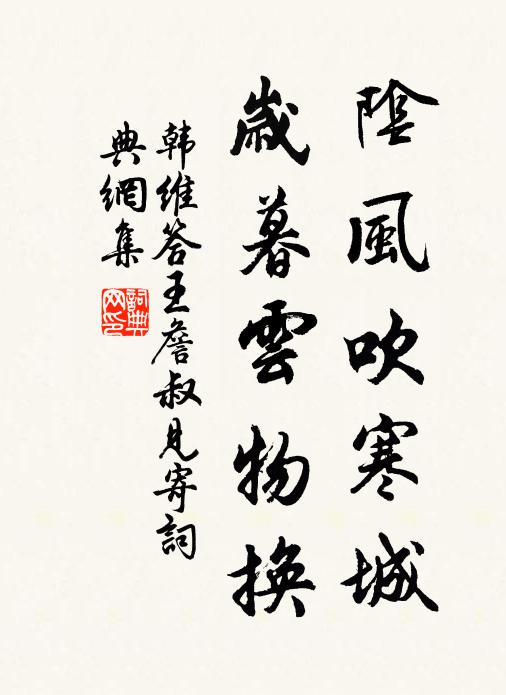 陰風吹寒城
歲暮雲物換
韩維答王詹叔見寄詞
典網集
詞典
网印